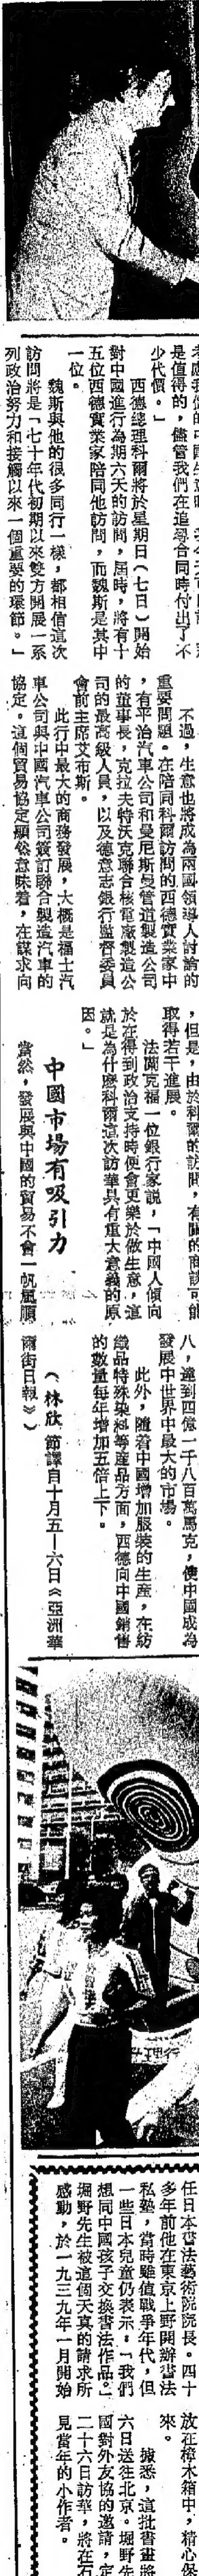 是值得的，儘管我們在追尋合同時付出了不
少代價。」
　西德總理科爾將於星期日（七日）開始
對中國進行為期六天的訪問，屆時，將有十
五位西德實業家陪同他訪問，而魏斯是其中
一位。
　魏斯與他的很多同行一樣，都相信這次
訪問將是「七十年代初期以來雙方開展一系
列政治努力和接觸以來一個重要的環節。」
　不過，生意也將成為兩國領導人討論的
重要問題。在陪同科爾訪問的西德實業家中
，有平治汽車公司和曼尼斯曼管道製造公司
的董事長，克拉夫特沃克聯合核電廠製造公
司的最高級人員，以及德意志銀行監督委員
會前主席艾布斯。
　此行中最大的商務發展，大概是福士汽
車公司與中國汽車公司簽訂聯合製造汽車的
協定。這個貿易協定顯然意味着，在謀求向
，但是，由於科爾的訪問，有關的商談可能
取得若干進展。
　法蘭克福一位銀行家說，「中國人傾向
於在得到政治支持時便會更樂於做生意，這
就是為什麼科爾這次訪華具有重大意義的原
因。」
中國市場有吸引力
　當然，發展與中國的貿易不會一帆風順
八，達到四億一千八百萬馬克，使中國成為
發展中世界中最大的市場。
　此外，隨着中國增加服裝的生產，在紡
織品特殊染料等產品方面，西德向中國銷售
的數量每年增加五倍上下。
（林欣 節譯自十月五—六日《亞洲華
爾街日報》）
任日本書法藝術院院長。四十
多年前他在東京上野開辦書法
私塾，當時雖值戰爭年代，但
一些日本兒童仍表示，「我們
想同中國孩子交換書法作品。」
堀野先生被這個天真的請求所
感動，於一九三九年一月開始
放在樟木箱中，精心保
來。
　據悉，這批書畫將
六日送往北京。堀野先
國對外友協的邀請，定
二十六日訪華，將在石
見當年的小作者。